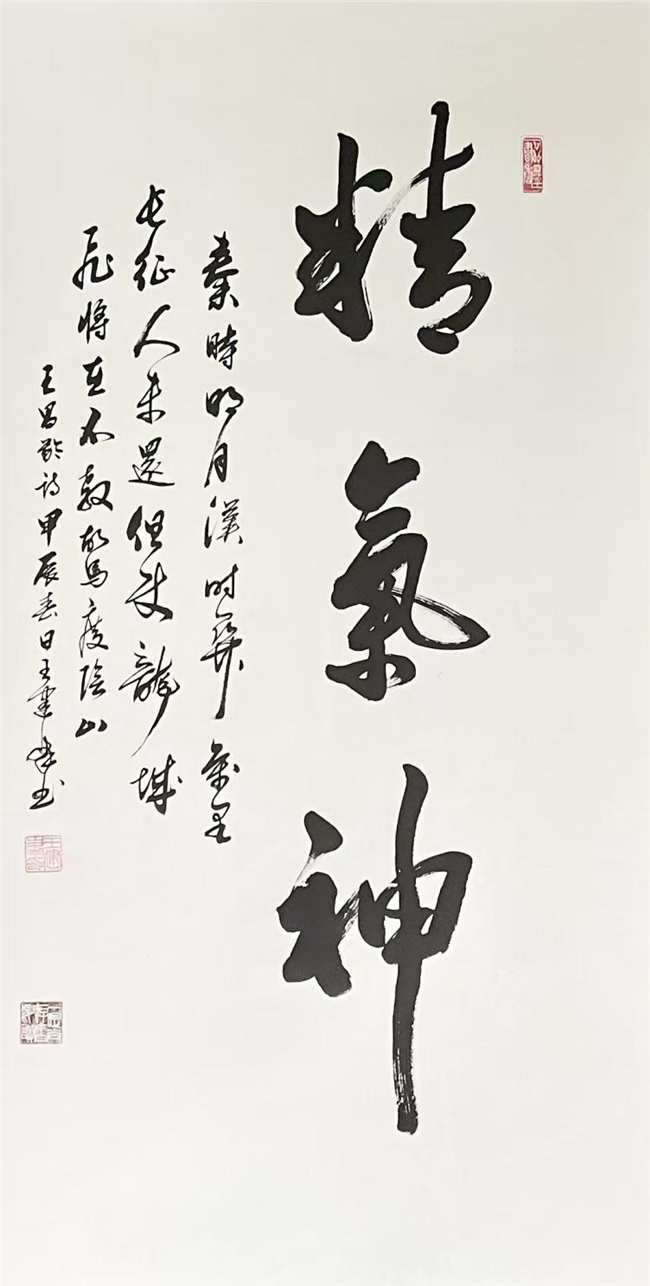 精氣神
秦時明月漢时關萬里
長征人未還但使龍城
飛将在不教胡馬度陰山
王昌齡诗甲辰春日王建峰书